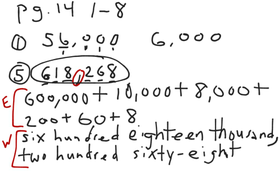 pg. 14 1-8
① 56,000 6,000
⑤ 618,268
E 600,000 + 10,000 + 8,000 +
200 + 60 + 8
W six hundred eighteen thousand,
two hundred sixty-eight